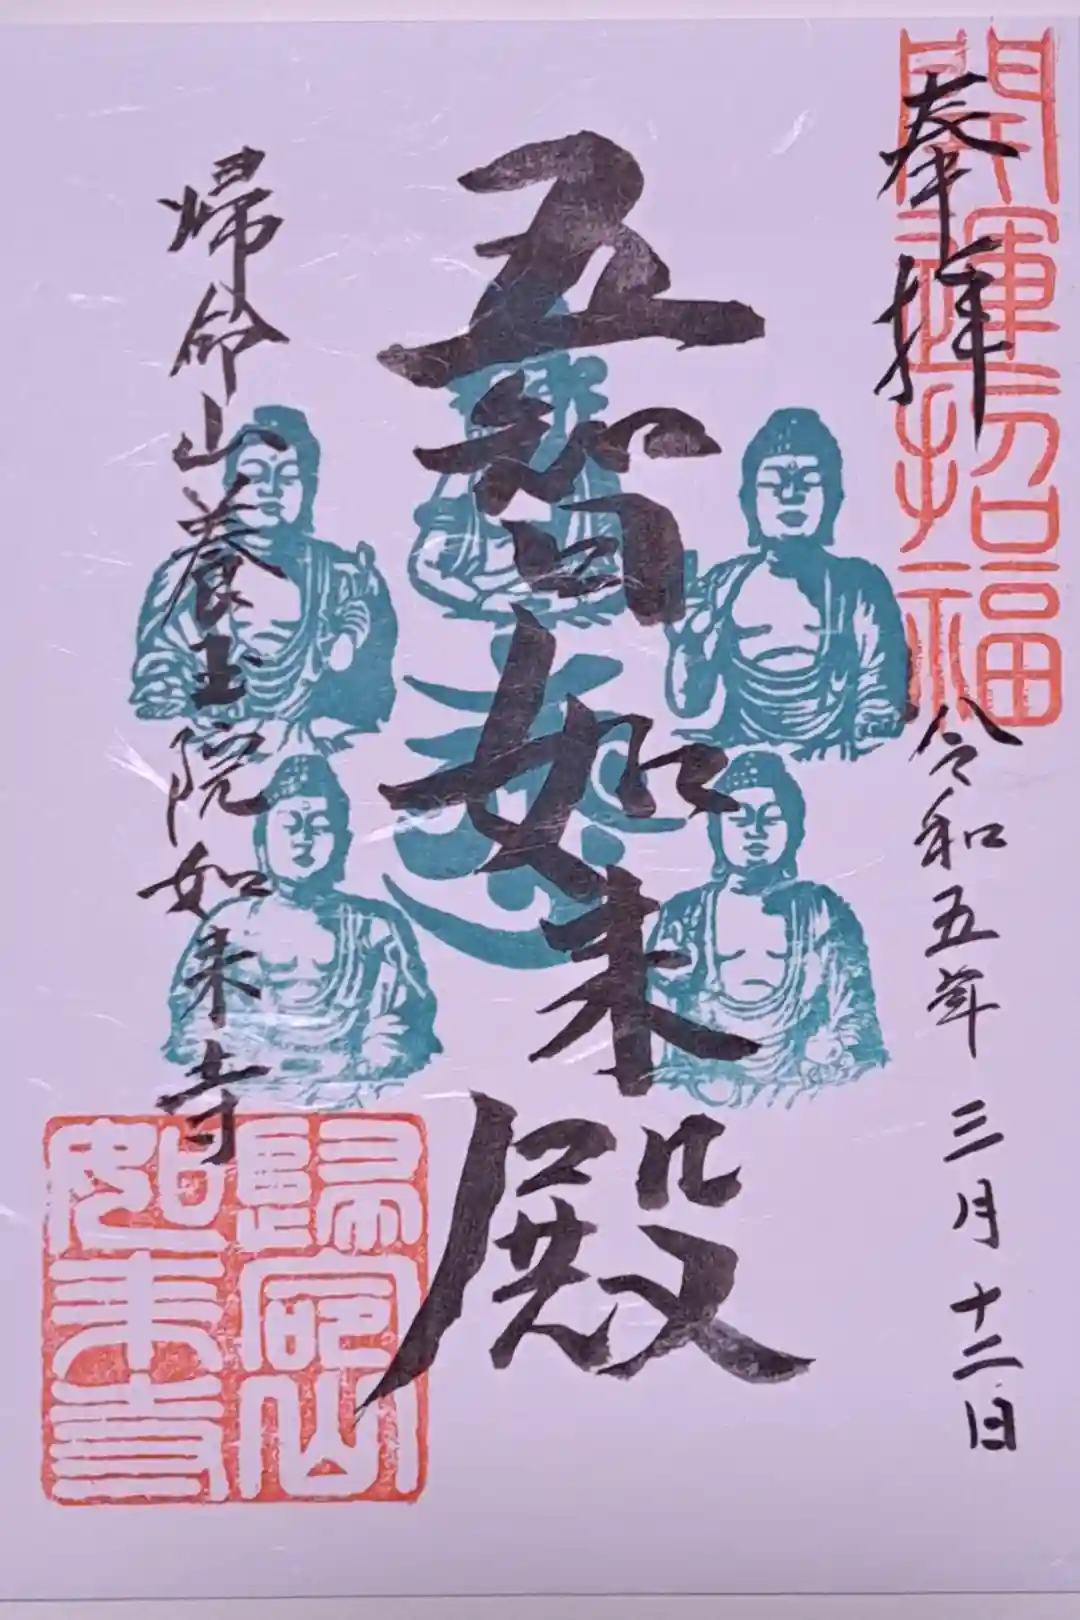 奉拝
開運招福
令和五年三月十二日
五智如来殿
帰命山養玉院如来寺
歸命山
如来寺